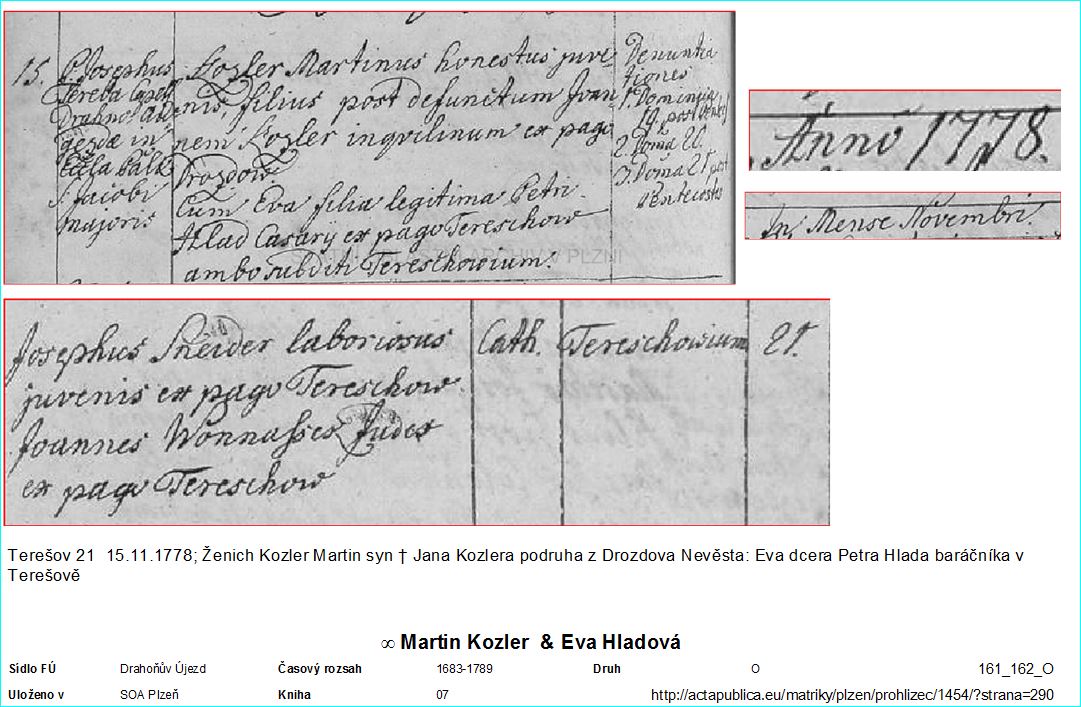 15. P. Josephus Kozler Martinus honestus juve- Denuntia
Tereba Capel. nis, filius post defunctum Joan- tiones
nem Kozler inqvilinum ex pago 1. Dominica
19. post
Drozdow 2. Doma 20.
Cum Eva filia legitima Petri 3. Doma 21 post
S. Jacobi Hlad ex pago Tereschow Pentecostes
majoris ambo subditi Tereschowium.
V PLZNI
Anno 1778.
In Mense Novembri.
Josephus Sneider laboriosus Cath. Tereschowium 21.
juvenis ex pago Tereschow
Joannes Judex
ex pago Tereschow
Terešov 21 15.11.1778; Ženich Kozler Martin syn † Jana Kozlera podruha z Drozdova Nevěsta: Eva dcera Petra Hlada baráčníka v
Terešově
∞ Martin Kozler & Eva Hladová
Sídlo FÚ Drahoňův Újezd Časový rozsah 1683-1789 Druh O 161_162_O
Uloženo v SOA Plzeň Kniha 07 http://actapublica.eu/matriky/plzen/prohlizec/1454/?strana=290